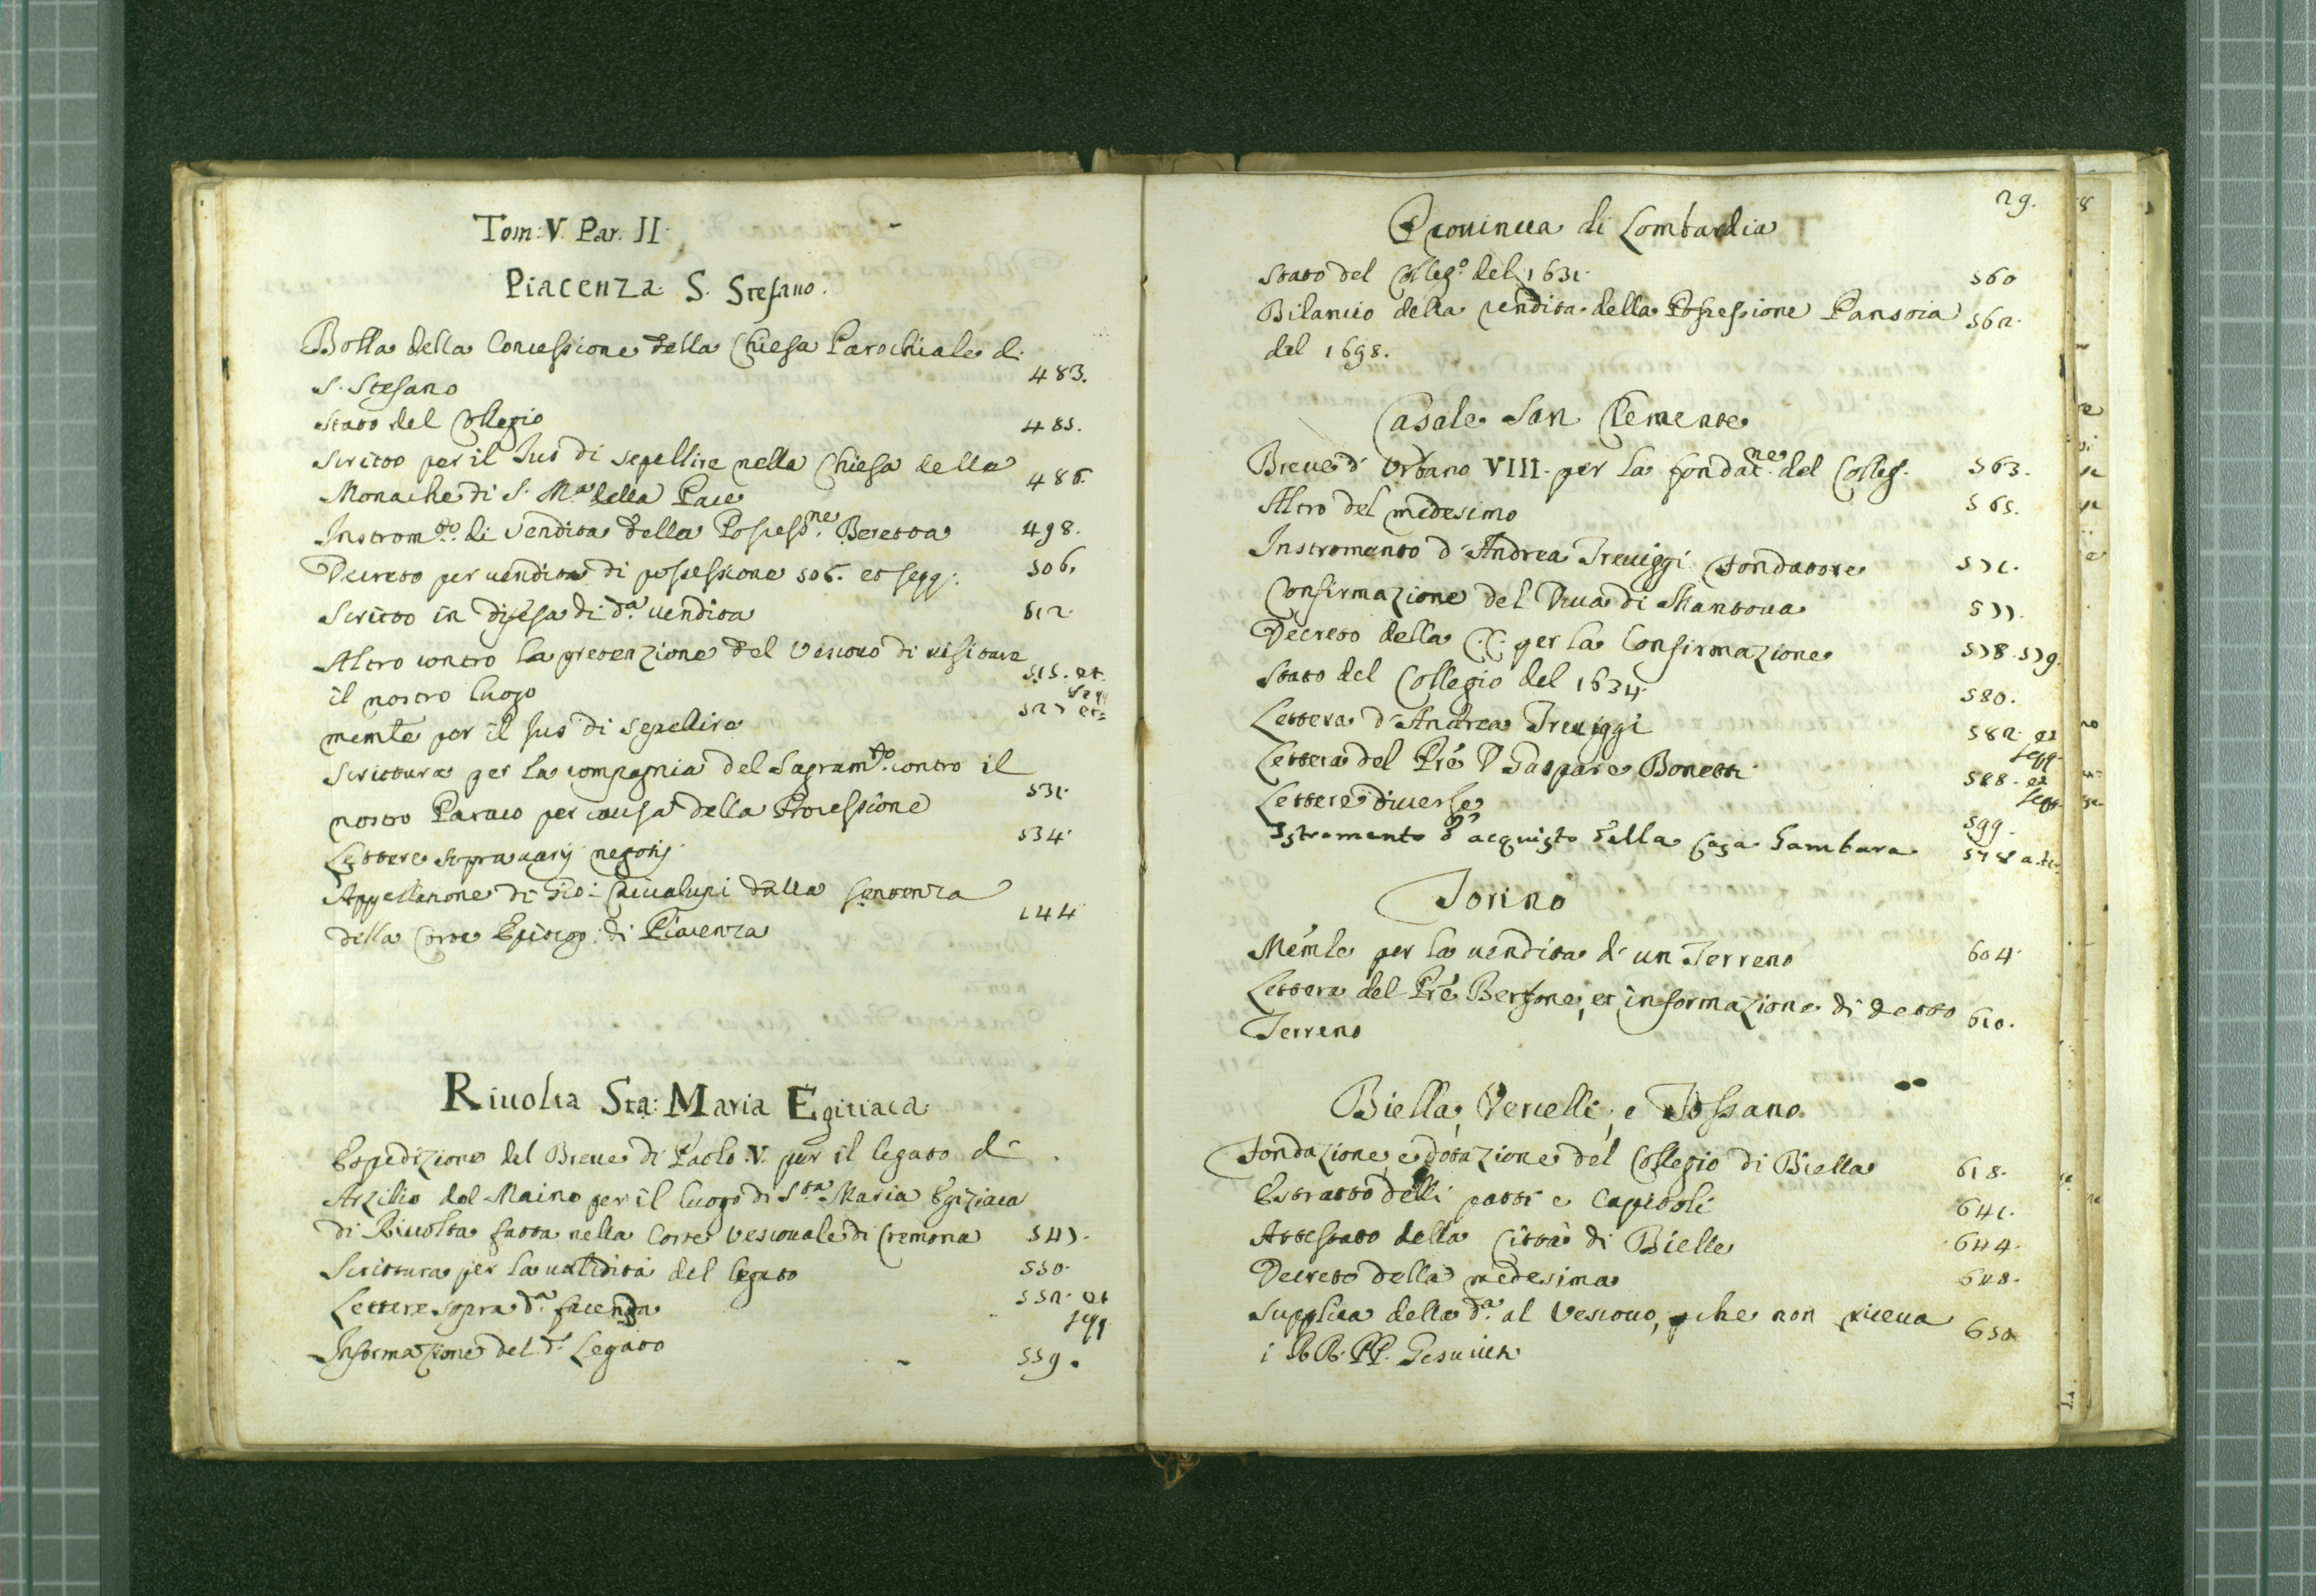 Tom: V. Par. II.
Piacenza. S. Stefano.
Bolla della Concessione della Chiesa Parochiale di
S. Stefano 483.
Stato del Collegio 485.
Scritto per il Jus di sepellire nella Chiesa delle
Monache di S. Ma della Pace 486.
Instromto. di vendita della Possessne. Beretta 498.
Decreto per vendita di possessione 506. et segg: 506.
Scritto in difesa di da. vendita 512.
Altro contro la pretenzione del Vescovo di visitare
il nostro luogo 515. et segg
memle per il Jus di sepellire 527 et=
Scrittura per la compagnia del Sagramto. contro il
nostro Paroco per causa della Processione 531.
Lettere sopra varij negotij 534.
Appellatione di Gio: dalla sentenza
della Corte Episcop: di Piacenza 144
Riuolta Sta: Maria Egitiaca
Espedizione del Breue di Paolo V. per il legato di
Atzilio dal Maino per il luogo di Sta Maria Egiziaca
di Riuolta fatta nella Corte Vescouale di Cremona 547.
Scrittura per la validità del legato 550.
Lettere sopra da. facenda 552. et segg
Informazione del d. Legato 559.
29.
Prouincia di Lombardia
Stato del Collego. del 1631. 560
Bilancio della rendita della Possessione Pansoia 562.
del 1698.
Casale San Clemente
Breue d'Urbano VIII. per la fondatne. del Colleg. 563.
Altro del medesimo 565.
Instromento d'Andrea Treuiggi fondatore 571.
Confirmazione del Duca di Mantoua 577.
Decreto della C. C. per la Confirmazione 578. 579.
Stato del Collegio del 1634. 580.
Lettera d'Andrea Treuiggi 582. et segg.
Lettera del Prè D Gaspare Bonetti 588. et segg.
Lettere diuerse 599.
Istromento d'acquisto della casa Gambara
Torino
Mémle per la vendita d'un Terreno 604.
Lettera del Prè Bertone, et informazione di detto
Terreno 610.
Biella, Vercelli, e Fossano
Fondazione, e dotazione del Collegio di Biella 618.
Estratto delli patti e Capitoli 641.
Attestato della Città di Biella 644.
Decreto della medesima 648.
Supplica della da. al Vescouo, che non riceua
i RR. PP. Gesuiti 650